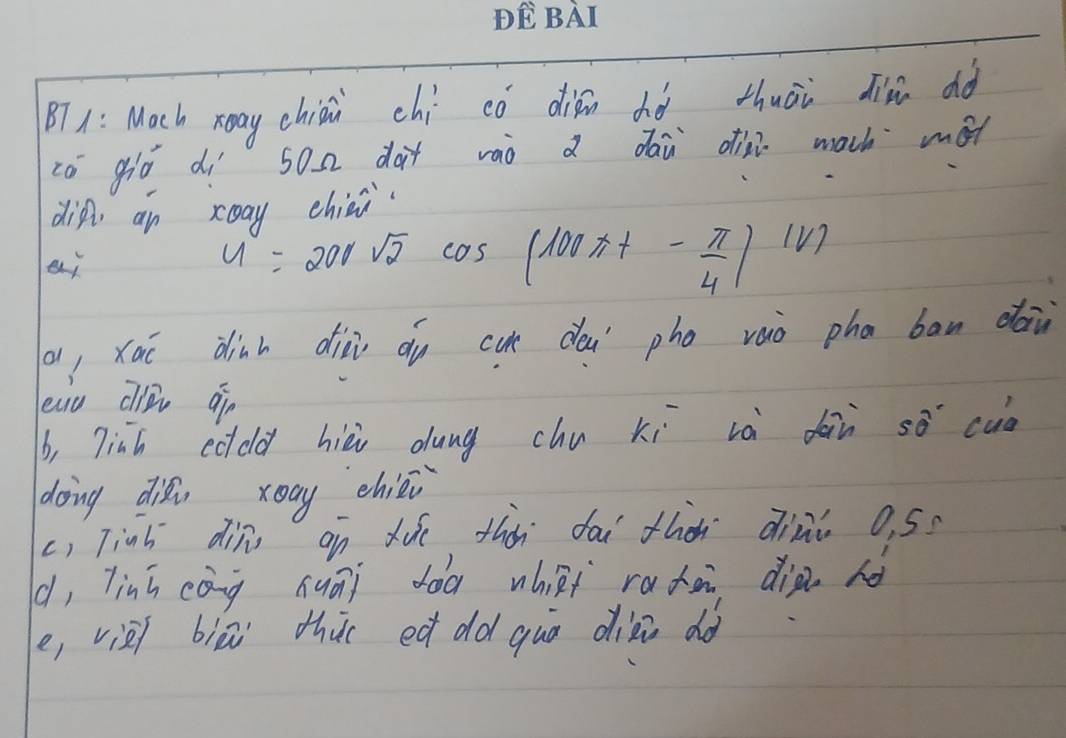 ĐỀ BÀI
BT1: Mạch xoay chiều chỉ có điện trở thuần điện trở
có giá trị 50Ω đặt vào 2 đầu điện mạch một
điện áp xoay chiều
u = 200√2 cos (100πt - π/4) (V)
a, Xác định điện áp cực đại pha vào pha ban đầu
của điện áp
b, Tính cđdđ hiệu dụng chu kì và tần số của
dòng điện xoay chiều
c, Tính điện áp tức thời tại thời điểm 0,5s
d, Tính công suất tỏa nhiệt ra trên điện trở
e, viết biểu thức cđ dđ qua điện trở